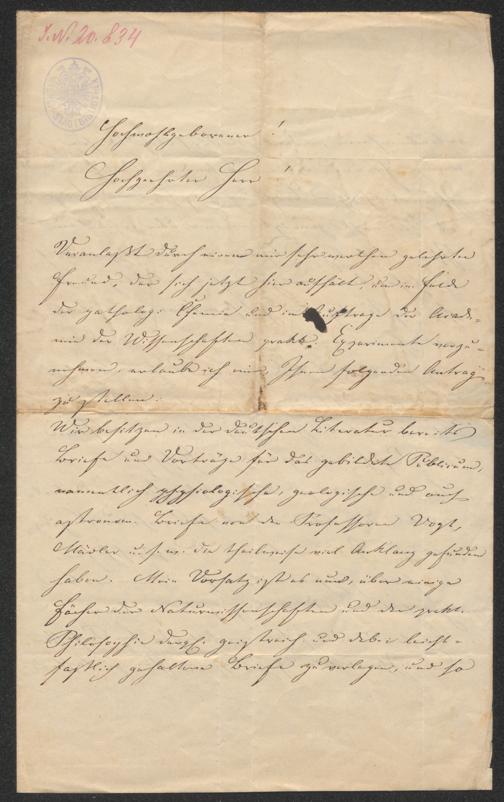 J.N. 20.834
Hochwohlgeborener!
Hochgeehrter Herr!
Veranlaßt durch einen mir sehr werthen gelehrten
Freund, der sich jetzt hier aufhält, um im Felde
der patholog. Chemie und im Auftrage der Acade-
mie der Wissenschaften prakt. Experimente vorzu-
nehmen, erlaube ich mir, Ihnen folgenden Antrag
zu stellen:
Wir besitzen in der deutschen Literatur bereits
Briefe und Vorträge für das gebildete Publicum,
namentlich physiologische, geologische und auch
astronom. Briefe von den Professoren Vogt,
Mädler u. s. w. die theilweise viel Anklang gefunden
haben. Mein Vorsatz ist es nun, über einige
Fächer der Naturwissenschaften und der prakt.
Philosophie dergl. geistreich und dabei leicht-
faßlich gehaltene Briefe zu verlegen, und so